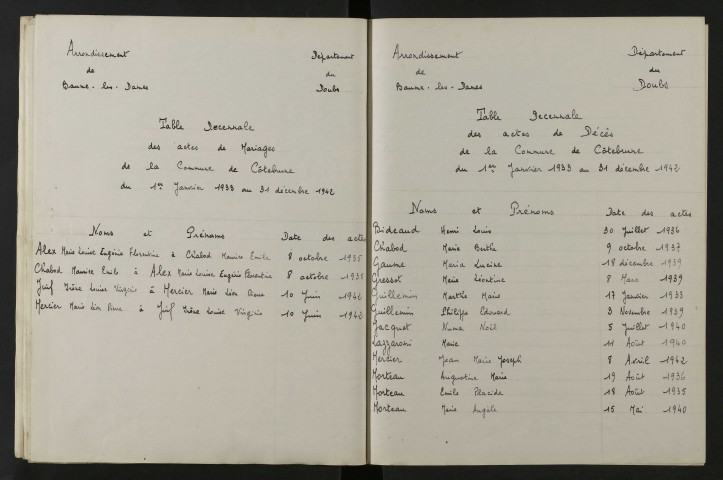 Arrondissement Département
de du
Baume-les-Dames Doubs
Table Decennale
des actes de Mariages
de la Commune de Côtebrune
du 1er Janvier 1933 au 31 décembre 1942
Noms et Prénoms Date des actes
Alex Marie Louise Eugénie Florentine à Chabod Maurice Emile 8 octobre 1935
Chabod Maurice Emile à Alex Marie Louise Eugénie Florentine 8 octobre 1935
Juif Irène Louise Virginie à Mercier Marie Léon 10 Juin 1942
Mercier Marie Léon à Juif Irène Louise Virginie 10 Juin 1942
Arrondissement Département
de du
Baume-les-Dames Doubs
Table Decennale
des actes de Décès
de la Commune de Côtebrune
du 1er Janvier 1933 au 31 décembre 1942
Noms et Prénoms Date des actes
Bideaud Henri Louis 30 Juillet 1936
Chabod Marie Berthe 9 octobre 1937
Gaume Maria Lucine 18 décembre 1939
Gressot Marie Léontine 8 Mars 1939
Guillemin Marthe Marie 17 Janvier 1933
Guillemin Philippe Edouard 3 Novembre 1939
Jacquot Numa Noël 5 Juillet 1940
Lazzaroni Marie 11 Août 1940
Mercier Jean Marie Joseph 8 Avril 1942
Morteau Augustine Marie 19 Août 1936
Morteau Emile Placide 18 Août 1935
Morteau Marie Angèle 15 Mai 1940